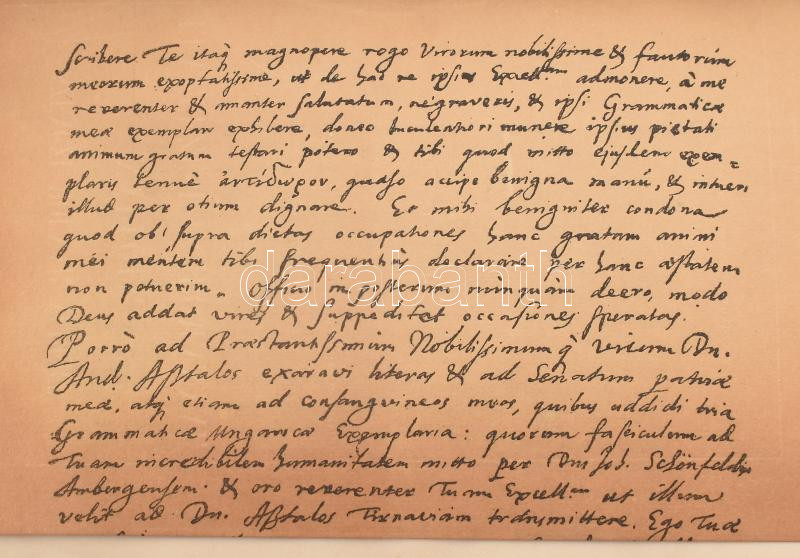 scribere. Te itaq; magnopere rogo Virorum nobilissime & fautorum
meorum exoptatissime, ut de hac re ipsius Excell:am admonere, à me
reverenter & amanter salutatum, ne graveris, & ipsi Grammaticæ
meæ exemplar exhibere, donec luculentiori munere ipsius pietati
animum gratum testari potero & tibi quod mitto ejusdem exem=
plaris tenuè ἀντίδωρον, quæso accipe benigna manu, & intueri
illud per otium dignare. Et mihi benigniter condona
quod ob supra dictas occupationes hanc gratam animi
mei mentem tibi frequentius declarare per hanc æstatem
non potuerim. Officio in posterum nunquam deero, modo
Deus addat vires & suppeditet occasiones speratas.
Porrò ad Præstantissimum Nobilissimumq; virum Dn.
And. Asztalos exaravi literas & ad Senatum patriæ
meæ, atq; etiam ad consanguineos meos, quibus addidi tria
Grammaticæ Ungaricæ Exemplaria: quorum fasciculum ad
Tuam incredibilem humanitatem mitto per Dn. Joh. Schönfeldium
Ambergensem & oro reverenter Tuam Excell:am ut illum
velit ad Dn. Asztalos Tirnaviam transmittere. Ego Tuæ
darabanth